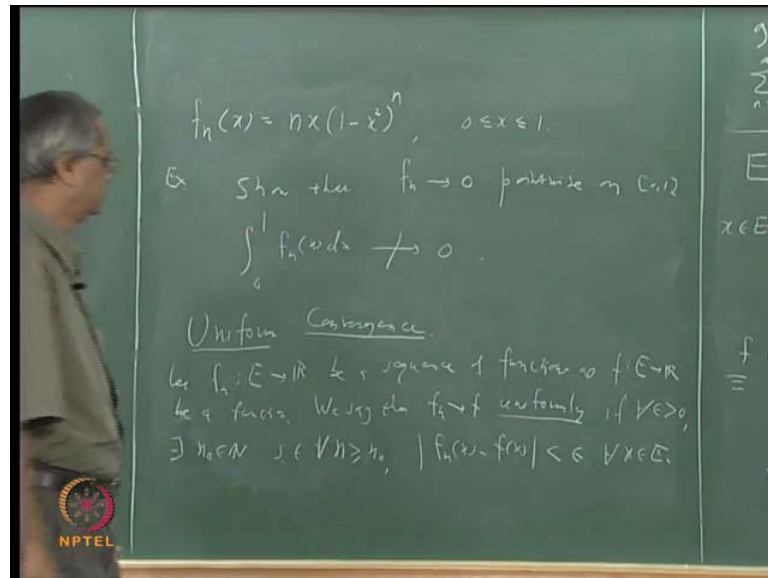 f_n(x) = nx(1-x²)^n, 0 ≤ x ≤ 1.
Ex Show that f_n → 0 pointwise on [0,1]
∫_0^1 f_n(x)dx ↛ 0.
Uniform Convergence.
Let f_n : E → ℝ be a sequence of functions f : E → ℝ
be a function. We say that f_n → f uniformly if ∀ε>0,
∃ n_0 ∈ ℕ s.t. ∀ n ≥ n_0, |f_n(x) - f(x)| < ε ∀ x ∈ E.
g
∑
n
E
x ∈ E
f
NPTEL